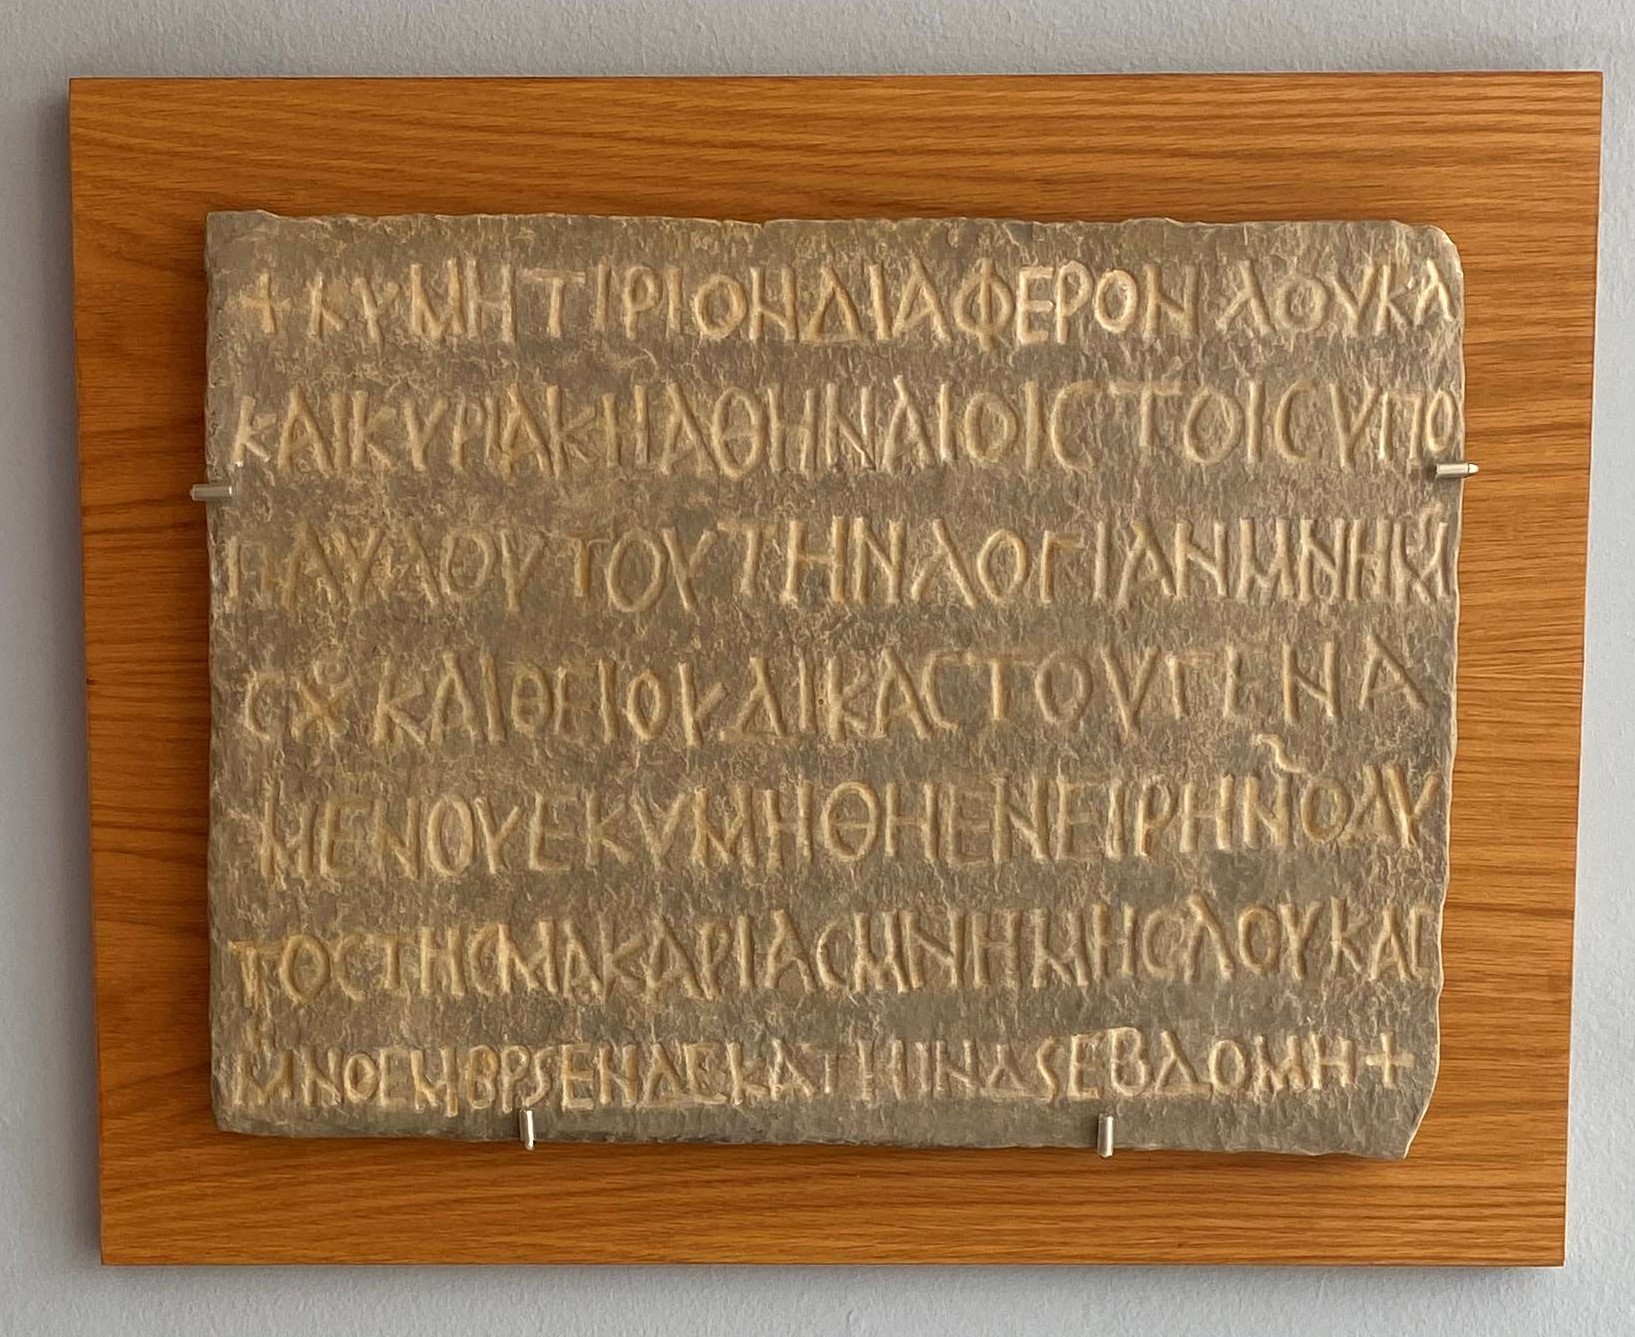 + ΚΥΜΗΤΙΡΙΟΝ ΔΙΑΦΕΡΟΝ ΛΟΥΚΑ
ΚΑΙ ΚΥΡΙΑΚΗ ΑΘΗΝΑΙΟΙС ΤΟΙС ΥΠΟ
ΠΑΥΛΟΥ ΤΟΥ ΤΗΝ ΛΟΓΙΑΝ ΜΝΗΜ
ΚΑΙ ΘΕΙΟΥ ΔΙΚΑСΤΟΥ ΓΕΝΑ
ΜΕΝΟΥ ΕΚΥΜΗΘΗ ΕΝ ΕΙΡΗΝ Ο ΑΥ
ΤΟС ΤΗС ΜΑΚΑΡΙΑС ΜΝΗΜΗС ΛΟΥΚΑС
Μ ΝΟΕΜΒΡS ΕΝΔΕΚΑΤΗ ΙΝΔS ΕΒΔΟΜΗ +